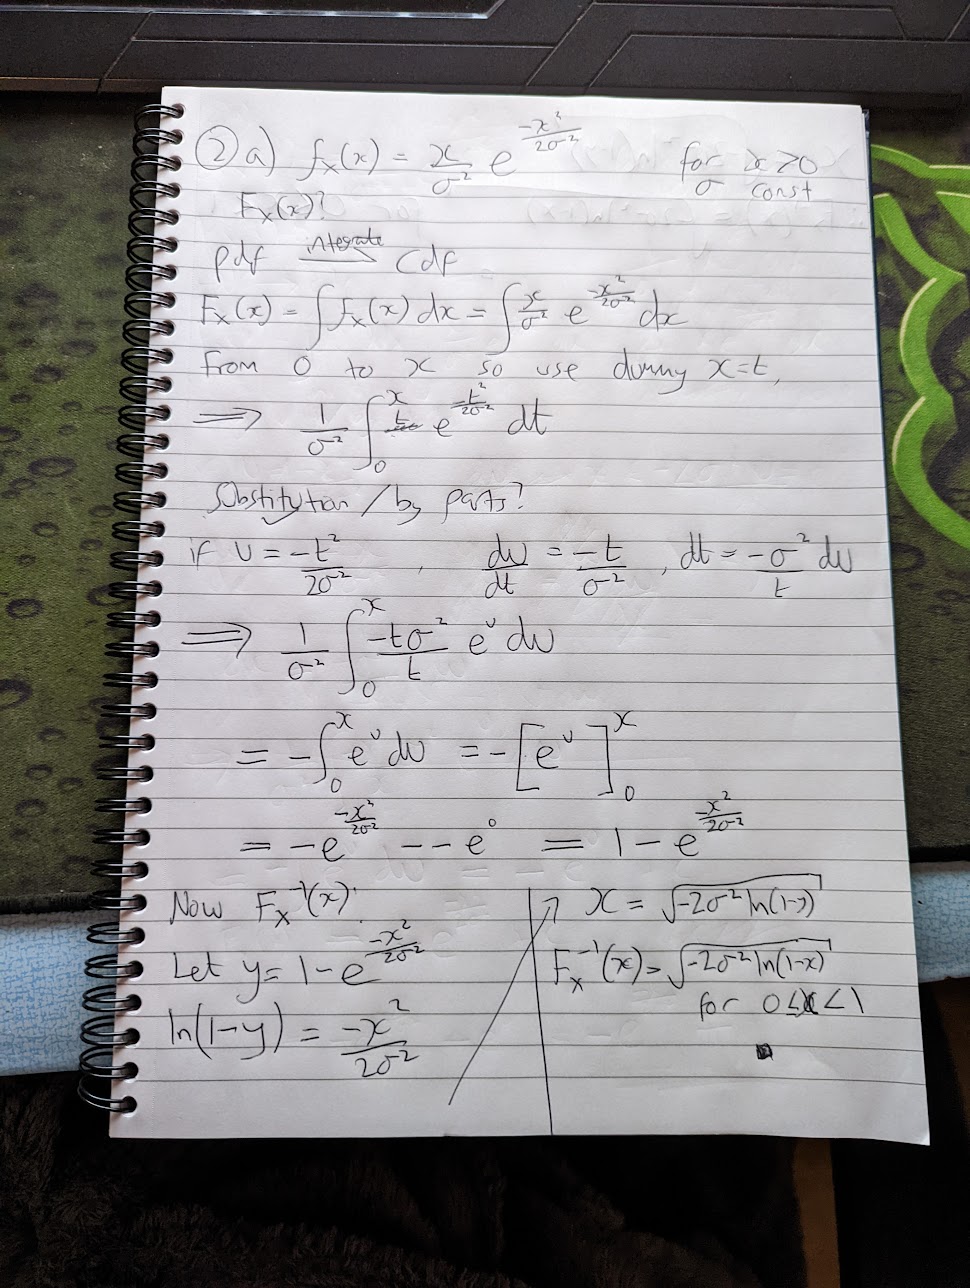 ② a) fₓ(x) = x/σ² e^(-x²/2σ²) for x ≥ 0
σ const
Fₓ(x)?
pdf integrate → cdf
Fₓ(x) = ∫ fₓ(x) dx = ∫ x/σ² e^(-x²/2σ²) dx
from 0 to x so use dummy x=t,
⟹ 1/σ² ∫₀ˣ t e^(-t²/2σ²) dt
Substitution / by parts?
if u = -t²/2σ² , du/dt = -t/σ² , dt = -σ²/t du
⟹ 1/σ² ∫₀ˣ -tσ²/t e^u du
= -∫₀ˣ e^u du = -[e^u]₀ˣ
= -e^(-x²/2σ²) - -e⁰ = 1 - e^(-x²/2σ²)
Now Fₓ⁻¹(x):
Let y = 1 - e^(-x²/2σ²)
ln(1-y) = -x²/2σ²
x = √(-2σ² ln(1-y))
Fₓ⁻¹(x) = √(-2σ² ln(1-x))
for 0 ≤ x < 1